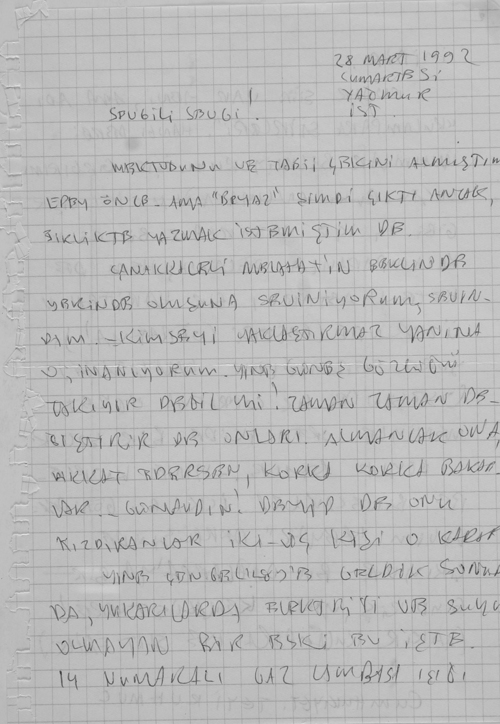 28 MART 1992
CUMARTESİ
YAĞMUR
İST.
SEVGİLİ SEVGİ!
MEKTUBUNU VE TABİİ ÇEKİNİ ALMIŞTIM
EPEY ÖNCE. AMA "BEYAZ" ŞİMDİ ÇIKTI ANCAK,
BİRLİKTE YAZMAK İSTEMİŞTİM DE.
ÇANAKKALELİ MELAHAT'İN
YERİNDE OLUŞUNA SEVİNİYORUM, SEVİN-
DİM. - KİMSEYİ YAKLAŞTIRMAZ YANINA
O, İNANIYORUM. YİNE GÜNEŞ GÖZLÜĞÜ
TAKIYOR DEĞİL Mİ! ZAMAN ZAMAN DE-
ĞİŞTİRİR DE ONLARI. ALMANLAR ONA,
DİKKAT EDERSEN, KORKA KORKA BAKAR-
LAR. - GÜNAYDIN! DEYİP DE ONU
KIZDIRANLAR İKİ-ÜÇ KİŞİ O KADAR
YİNE ÇENGELKÖY'E GELDİK SONUN
DA, YUKARILARDA, ELEKTRİĞİ VE SUYU
OLMAYAN BİR ESKİ EV İŞTE.
14 NUMARALI GAZ LAMBASI IŞIĞI